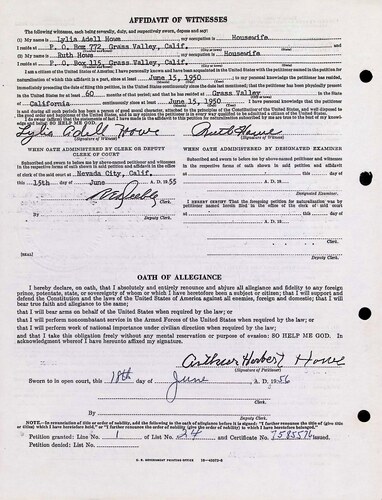 AFFIDAVIT OF WITNESSES
The following witnesses, each being severally, duly, and respectively sworn, depose and say:
(1) My name is Lylia Adell Howe my occupation is Housewife
I reside at P. O. Box 772, Grass Valley, Calif.
(2) My name is Ruth Howe my occupation is Housewife
I reside at P. O. Box 115, Grass Valley, Calif.
I am a citizen of the United States of America. I have personally known and have been acquainted in the United States with the petitioner named in the petition for
naturalization of which this affidavit is a part, since at least June 15, 1950; to my personal knowledge the petitioner has resided,
immediately preceding the date of filing this petition, continuously in the United States since the date last mentioned; that the petitioner has been physically present
in the United States for at least 60 months of that period; and that he has resided at Grass Valley
in the State of
California continuously since at least June 15, 1950. I have personal knowledge that the petitioner
is and during all such periods has been a person of good moral character, attached to the principles of the Constitution of the United States, and well disposed to
the good order and happiness of the United States, and in my opinion the petitioner is in every way qualified to be admitted a citizen of the United States.
I do swear (affirm) that the statements of fact I have made in this affidavit to the petition for naturalization subscribed by me are true to the best of my knowl-
edge and belief: SO HELP ME GOD.
Lylia Adell Howe Ruth Howe
(Signature of Witness) (Signature of Witness)
WHEN OATH ADMINISTERED BY CLERK OR DEPUTY
CLERK OF COURT
Subscribed and sworn to before me by above-named petitioner and witnesses
in the respective forms of oath shown in said petition and affidavit in the office
of the clerk of said court at Nevada City, Calif.
this 15th day of June A. D. 1955
Clerk.
By
Deputy Clerk.
[SEAL]
WHEN OATH ADMINISTERED BY DESIGNATED EXAMINER
Subscribed and sworn to before me by above-named petitioner and witnesses
in the respective forms of oath shown in said petition and affidavit at
this day of A. D. 19
Designated Examiner.
I HEREBY CERTIFY That the foregoing petition for naturalization was by
petitioner named herein filed in the office of the clerk of said court
this day of A. D. 19
Clerk.
By
Deputy Clerk.
OATH OF ALLEGIANCE
I hereby declare, on oath, that I absolutely and entirely renounce and abjure all allegiance and fidelity to any foreign
prince, potentate, state, or sovereignty of whom or which I have heretofore been a subject or citizen; that I will support and
defend the Constitution and the laws of the United States of America against all enemies, foreign and domestic; that I will
bear true faith and allegiance to the same;
that I will bear arms on behalf of the United States when required by the law; or
that I will perform noncombatant service in the Armed Forces of the United States when required by the law; or
that I will perform work of national importance under civilian direction when required by the law;
and that I take this obligation freely without any mental reservation or purpose of evasion: SO HELP ME GOD. In
acknowledgment whereof I have hereunto affixed my signature.
Arthur Herbert Howe
(Signature of Petitioner)
Sworn to in open court, this 18th day of June, A. D. 1956
Clerk.
By Deputy Clerk.
NOTE.—In renunciation of title or order of nobility, add the following to the oath of allegiance before it is signed: "I further renounce the title of (give this
or titles) which I have heretofore held," or "I further renounce the order of nobility (give the order of nobility) to which I have heretofore belonged."
Petition granted: Line No. 1 of List No. 24 and Certificate No. 7585576 issued.
Petition denied: List No.
U. S. GOVERNMENT PRINTING OFFICE